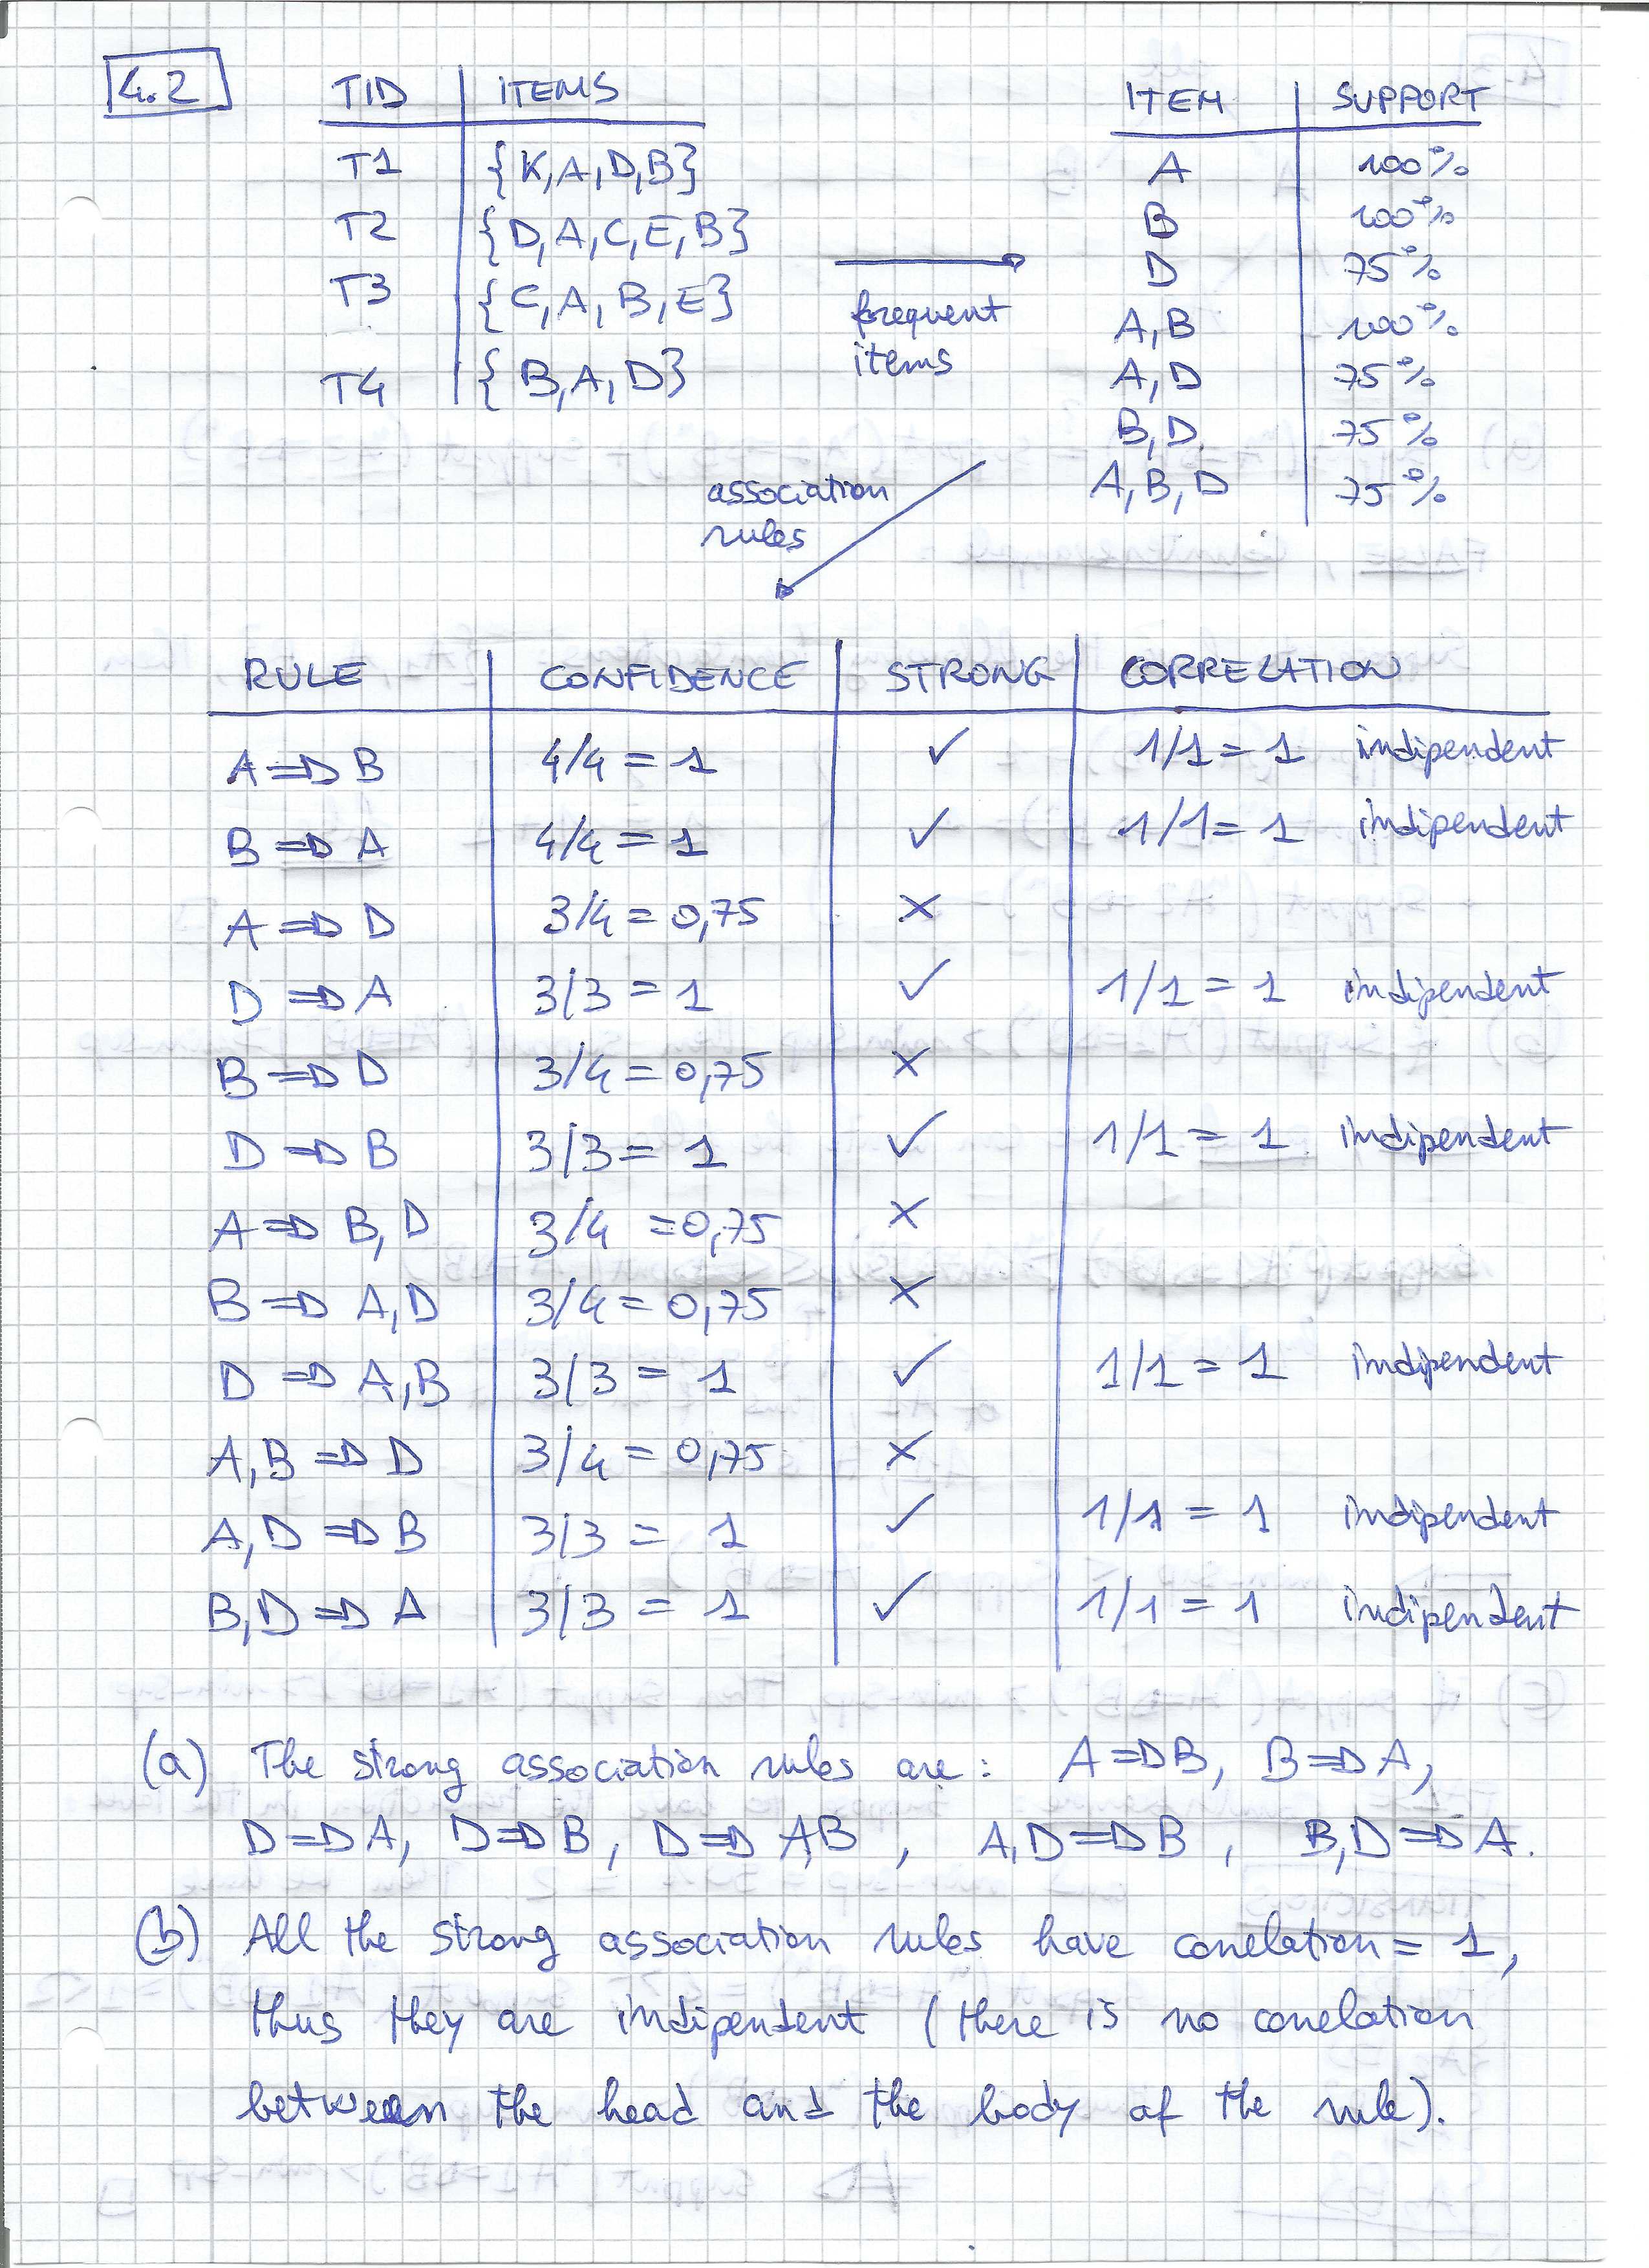 4.2
TID ITEMS
T1 {K,A,D,B}
T2 {D,A,C,E,B}
T3 {C,A,B,E}
T4 {B,A,D}
frequent
items
ITEM SUPPORT
A 100%
B 100%
D 75%
A,B 100%
A,D 75%
B,D 75%
A,B,D 75%
association
rules
RULE CONFIDENCE STRONG CORRELATION
A ⇒ B 4/4 = 1 ✓ 1/1 = 1 indipendent
B ⇒ A 4/4 = 1 ✓ 1/1 = 1 indipendent
A ⇒ D 3/4 = 0,75 ×
D ⇒ A 3/3 = 1 ✓ 1/1 = 1 indipendent
B ⇒ D 3/4 = 0,75 ×
D ⇒ B 3/3 = 1 ✓ 1/1 = 1 indipendent
A ⇒ B,D 3/4 = 0,75 ×
B ⇒ A,D 3/4 = 0,75 ×
D ⇒ A,B 3/3 = 1 ✓ 1/1 = 1 indipendent
A,B ⇒ D 3/4 = 0,75 ×
A,D ⇒ B 3/3 = 1 ✓ 1/1 = 1 indipendent
B,D ⇒ A 3/3 = 1 ✓ 1/1 = 1 indipendent
(a) The strong association rules are: A ⇒ B, B ⇒ A,
D ⇒ A, D ⇒ B, D ⇒ A,B, A,D ⇒ B, B,D ⇒ A.
(b) All the strong association rules have correlation = 1,
thus they are indipendent (there is no correlation
between the head and the body of the rule).